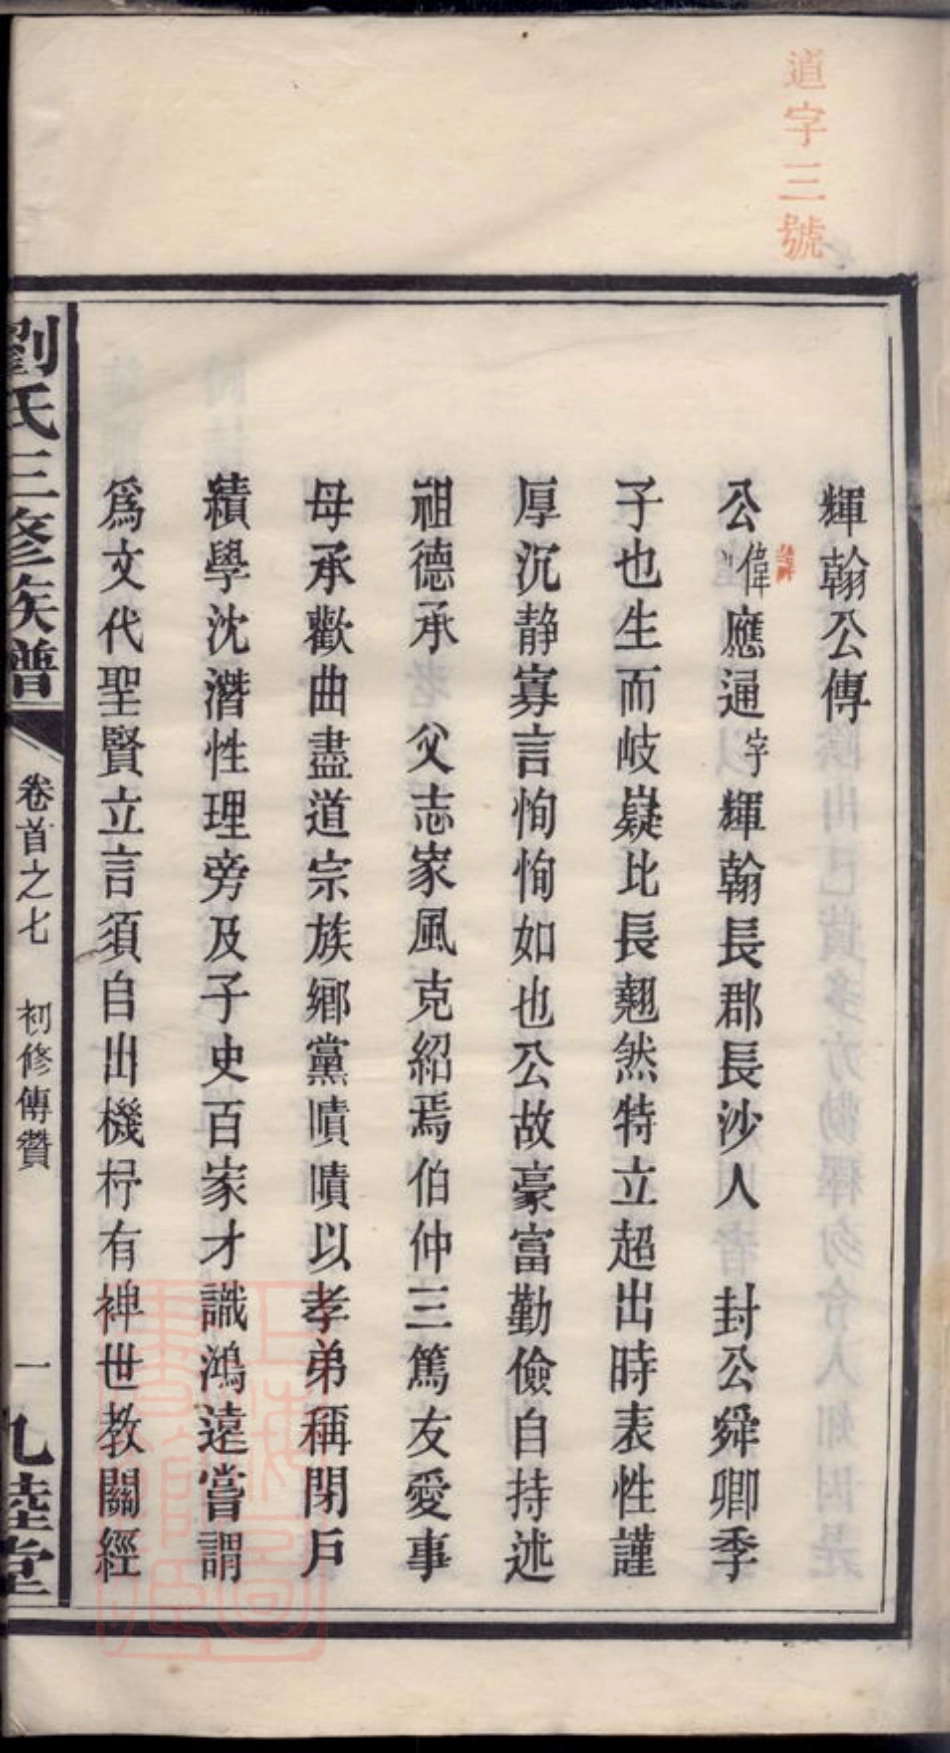 道字三號
輝翰公傳
公偉應通字輝翰長郡長沙人 封公舜卿季
子也生而岐嶷比長翹然特立超出時表性謹
厚沉静寡言恂恂如也公故豪富勤儉自持述
祖德承 父志家風克紹焉伯仲三篤友愛事
母承歡曲盡道宗族鄉黨嘖嘖以孝弟稱閉戶
績學沈潛性理旁及子史百家才識鴻遠嘗謂
爲文代聖賢立言須自出機杼有裨世教關經
劉氏三修族譜
卷首之七 初修傳贊 一
九陸堂